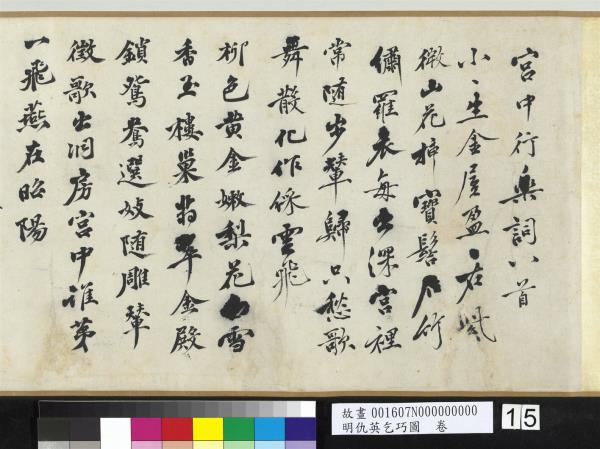 宮中行樂詞八首
小〻生金屋盈〻在紫
微山花插寶髻石竹
繡羅衣每出深宮裡
常隨步輦歸只愁歌
舞散化作綵雲飛
柳色黃金嫩梨花白雪
香玉樓巢翡翠金殿
鎖鴛鴦選妓随雕輦
徵歌出洞房宮中誰第
一飛燕在昭陽
故畫 001607N000000000
明仇英乞巧圖 卷
15